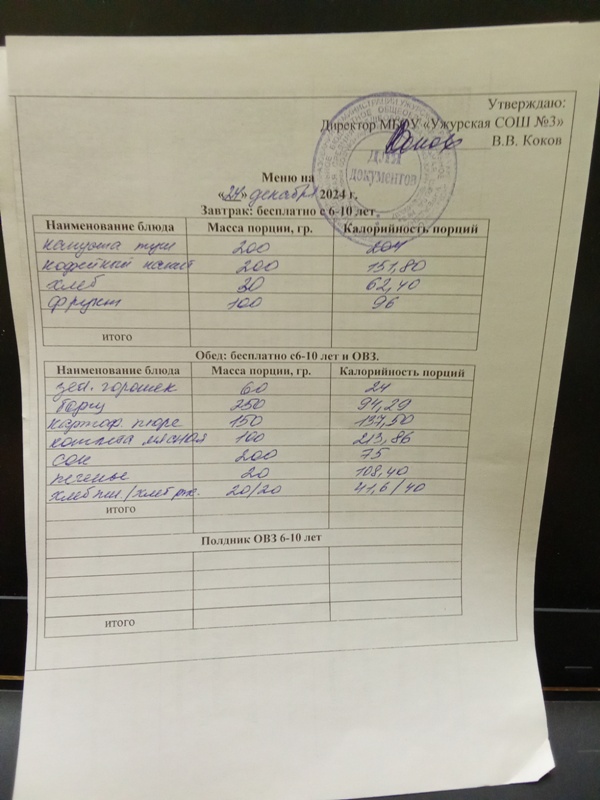 Утверждаю:
Директор МБОУ «Ужурская СОШ №3»
В.В. Коков
для документов
Меню на
«24» декабря 2024 г.
Завтрак: бесплатно с 6-10 лет.
Наименование блюда Масса порции, гр. Калорийность порций
капуста туш 200 204
кофейный напит 200 151,80
хлеб 62,40
фрукт 100 96
итого
Обед: бесплатно с6-10 лет и ОВЗ.
Наименование блюда Масса порции, гр. Калорийность порций
зел. горошек 60 24
борщ 250 94,29
картоф. пюре 150 137,50
котлета мясная 100 213,86
сок 200 75
печенье 20 108,40
хлеб пш./хлеб рж. 20/20 41,6/40
итого
Полдник ОВЗ 6-10 лет
итого